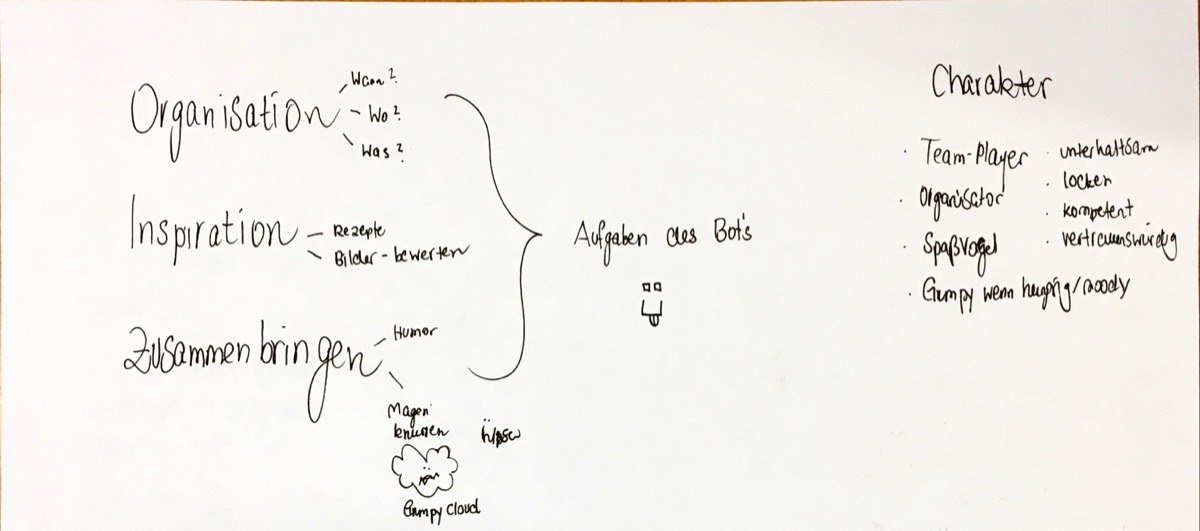 Organisation
Wann?
Wo?
Was?
Inspiration
Rezepte
Bilder-bewerten
Zusammenbringen
Humor
Magen
Grmpy Cloud
Aufgaben des Bot's
Charakter
Team-Player
Organisator
Spaßvogel
Grmpy wenn hungrig/moody
unterhaltsam
locker
kompetent
vertrauenswürdig